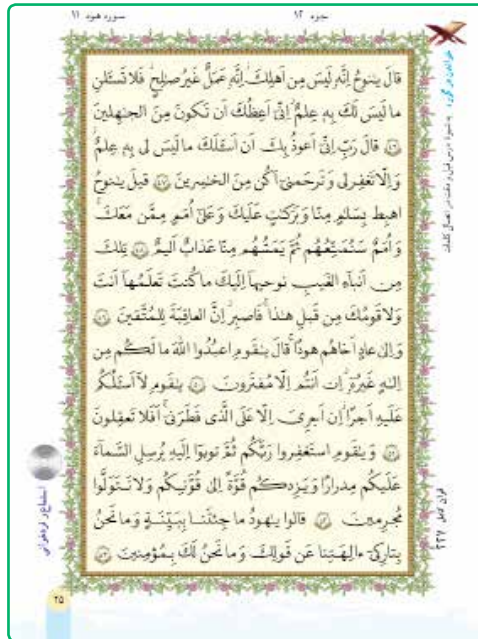 جزء ۱۲
سوره هود ۱۱
قالَ یٰنوحُ اِنَّهٗ لَیسَ مِن اَهلِكَ ۖ اِنَّهٗ عَمَلٌ غَیرُ صٰلِحٍ ۖ فَلا تَسئَلنِ
ما لَیسَ لَكَ بِهٖ عِلمٌ ۖ اِنّی اَعِظُكَ اَن تَكونَ مِنَ الجٰهِلینَ
﴿۴۶﴾ قالَ رَبِّ اِنّی اَعوذُ بِكَ اَن اَسئَلَكَ ما لَیسَ لی بِهٖ عِلمٌ ۖ
وَ اِلّا تَغفِر لی وَ تَرحَمنی اَكُن مِنَ الخٰسِرینَ ﴿۴۷﴾ قیلَ یٰنوحُ
اهبِط بِسَلٰمٍ مِنّا وَ بَرَكٰتٍ عَلَیكَ وَ عَلیٰ اُمَمٍ مِمَّن مَعَكَ ۚ
وَ اُمَمٌ سَنُمَتِّعُهُم ثُمَّ یَمَسُّهُم مِنّا عَذابٌ اَلیمٌ ﴿۴۸﴾ تِلكَ
مِن اَنبآءِ الغَیبِ نوحیهآ اِلَیكَ ۖ ما كُنتَ تَعلَمُهآ اَنتَ
وَ لا قَومُكَ مِن قَبلِ هٰذا ۖ فَاصبِر ۖ اِنَّ العاقِبَةَ لِلمُتَّقینَ ﴿۴۹﴾
وَ اِلیٰ عادٍ اَخاهُم هودًا ۚ قالَ یٰقَومِ اعبُدُوا اللّٰهَ ما لَكُم مِن
اِلٰهٍ غَیرُهٗ ۖ اِن اَنتُم اِلّا مُفتَرونَ ﴿۵۰﴾ یٰقَومِ لآ اَسئَلُكُم
عَلَیهِ اَجرًا ۖ اِن اَجرِیَ اِلّا عَلَی الَّذی فَطَرَنی ۚ اَفَلا تَعقِلونَ
﴿۵۱﴾ وَ یٰقَومِ استَغفِروا رَبَّكُم ثُمَّ توبوٓا اِلَیهِ یُرسِلِ السَّمآءَ
عَلَیكُم مِدرارًا وَ یَزِدكُم قُوَّةً اِلیٰ قُوَّتِكُم وَ لا تَتَوَلَّوا
مُجرِمینَ ﴿۵۲﴾ قالوا یٰهودُ ما جِئتَنا بِبَیِّنَةٍ وَ ما نَحنُ
بِتارِكیٓ ءالِهَتِنا عَن قَولِكَ وَ ما نَحنُ لَكَ بِمُؤمِنینَ ﴿۵۳﴾
استماع و هم‌خوانی
قرآن کامل ۲۲۷
۲۵